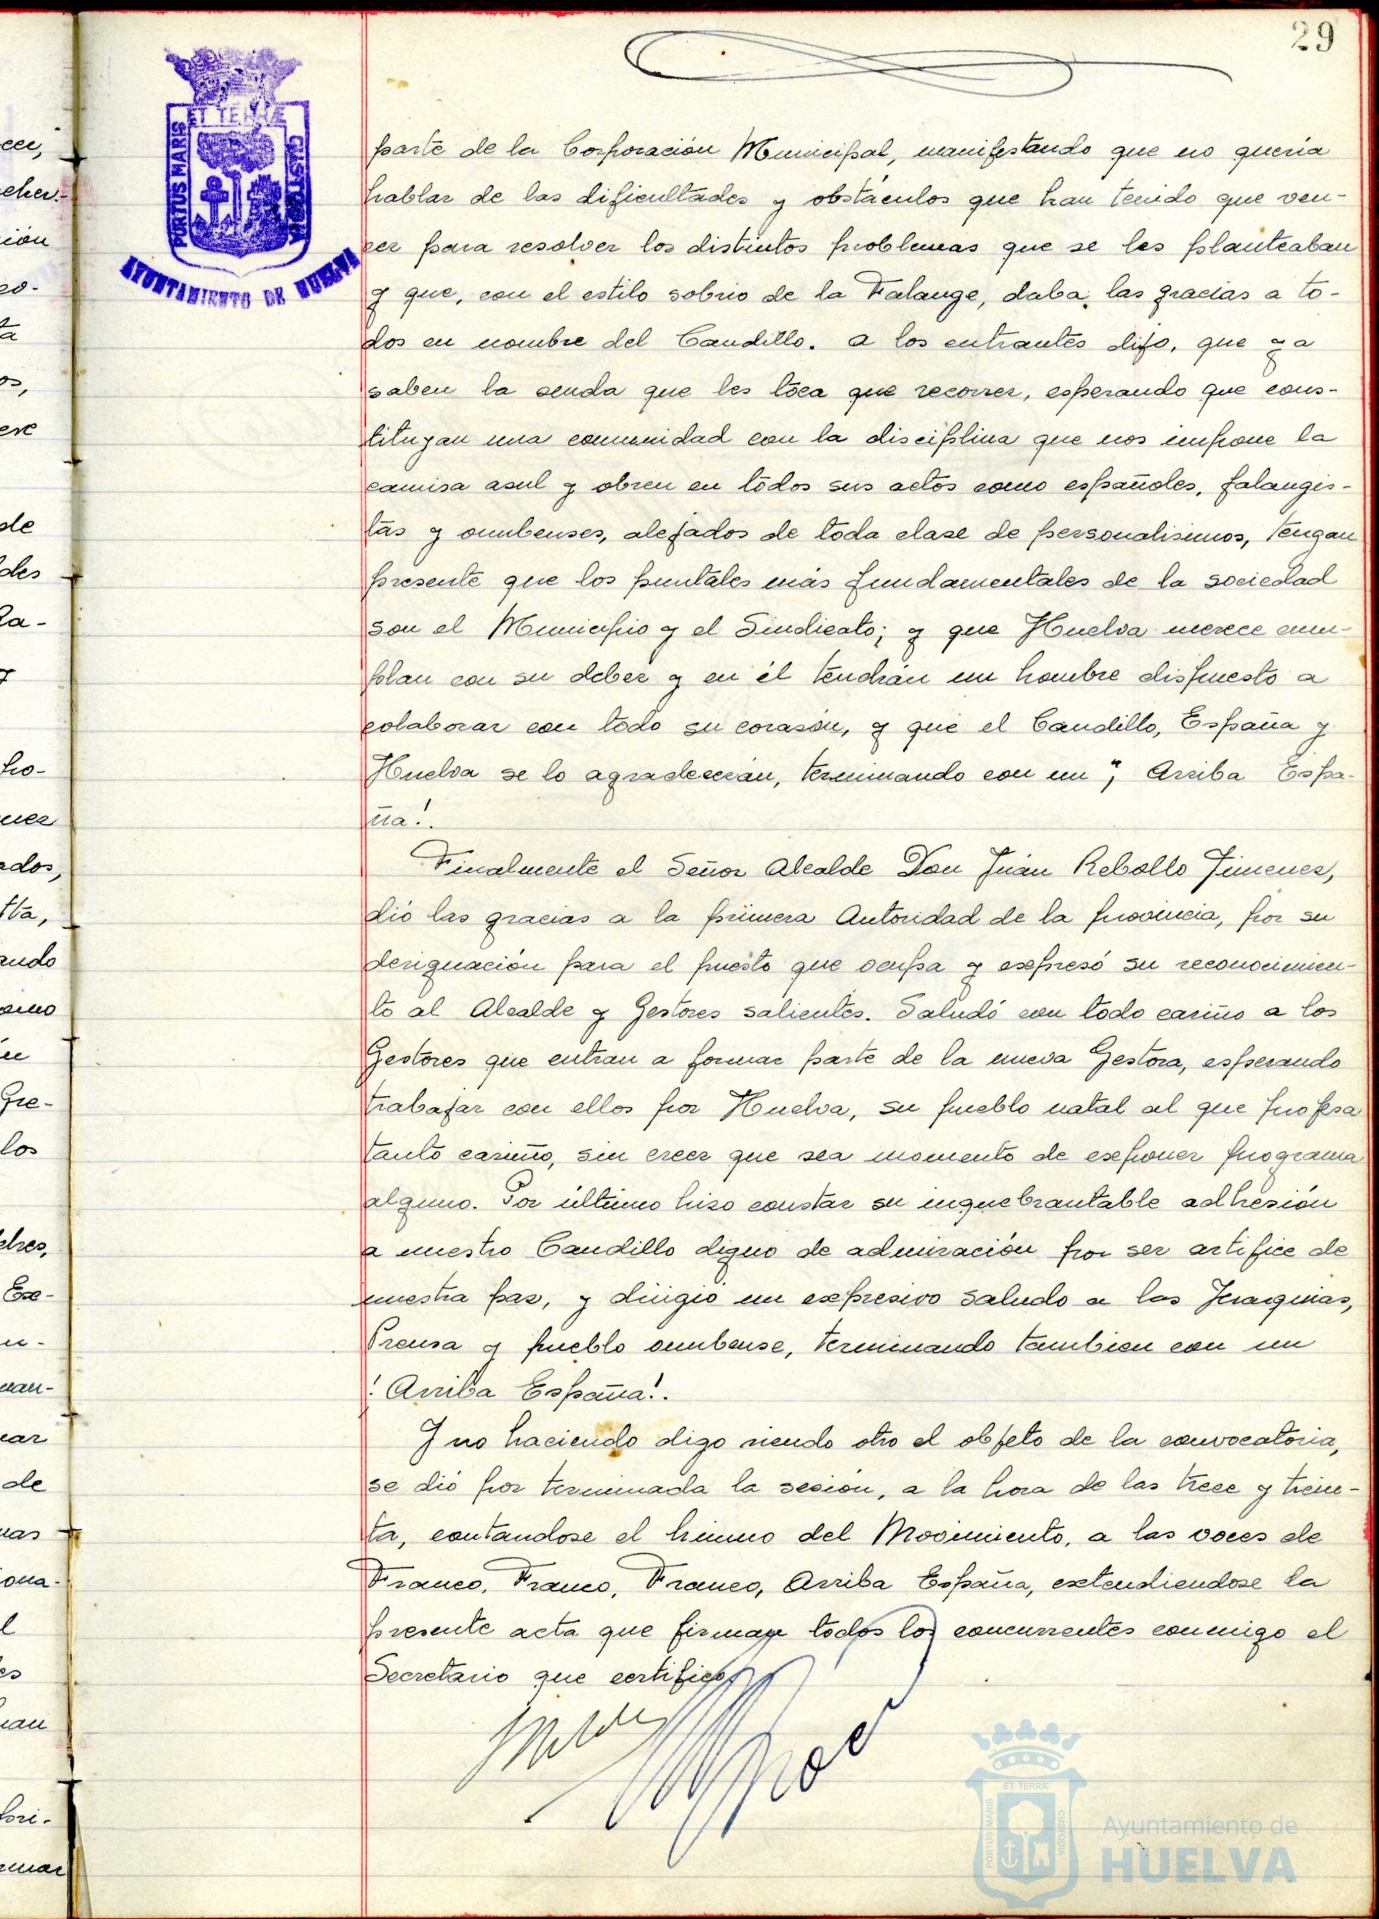 29
ET TERRÆ
PORTUS MARIS
CUSTODIA
AYUNTAMIENTO DE HUELVA
parte de la Corporación Municipal, manifestando que no quería
hablar de las dificultades y obstáculos que han tenido que ven-
cer para resolver los distintos problemas que se les planteaban
y que, con el estilo sobrio de la Falange, daba las gracias a to-
dos en nombre del Caudillo. A los entrantes dijo, que ya
saben la senda que les toca que recorrer, esperando que cons-
tituyan una comunidad con la disciplina que nos impone la
camisa asul y obren en todos sus actos como españoles, falangis-
tas y onubenses, alejados de toda clase de personalismos, tengan
presente que los puntales más fundamentales de la sociedad
son el Municipio y el Sindicato; y que Huelva merece cum-
plan con su deber y en él tendrán un hombre dispuesto a
colaborar con todo su corasón, y que el Caudillo, España y
Huelva se lo agradecerán, terminando con un "¡ Arriba Espa-
ña!.
Finalmente el Señor Alcalde Don Juán Rebollo Jimenez,
dió las gracias a la primera Autoridad de la provincia, por su
designación para el puesto que ocupa y expresó su reconocimien-
to al Alcalde y Gestores salientes. Saludó con todo cariño a los
Gestores que entran a formar parte de la nueva Gestora, esperando
trabajar con ellos por Huelva, su pueblo natal al que profesa
tanto cariño, sin creer que sea momento de exponer programa
alguno. Por último hizo constar su inquebrantable adhesión
a nuestro Caudillo digno de admiración por ser artifice de
nuestra paz, y dirigió un expresivo saludo a las Jerarquias,
Prensa y pueblo onubense, terminando tambien con un
! Arriba España!.
Y no haciendo digo siendo otro el objeto de la convocatoria,
se dió por terminada la sesión, a la hora de las trece y trein-
ta, cantandose el himno del Movimiento, a las voces de
Franco, Franco, Franco, Arriba España, extendiendose la
presente acta que firman todos los concurrentes conmigo el
Secretario que certifico.
ET TERRÆ
PORTUS MARIS
CUSTODIA
Ayuntamiento de
HUELVA